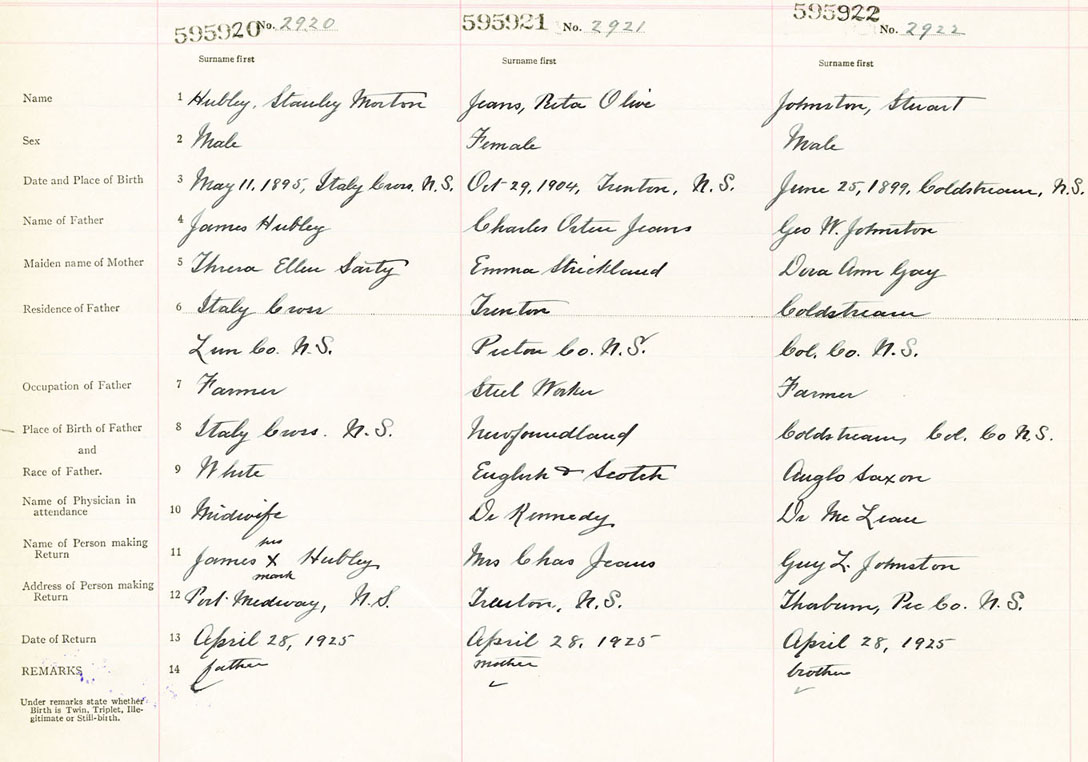 595920 No. 2920 595921 No. 2921 595922 No. 2922
Surname first Surname first Surname first
Name 1 Hubley, Stanley Morton Jeans, Rita Olive Johnston, Stuart
Sex 2 Male Female Male
Date and Place of Birth 3 May 11, 1895, Italy Cross, N.S. Oct 29, 1904, Trenton, N.S. June 25, 1899, Coldstream, N.S.
Name of Father 4 James Hubley Charles Jeans Geo W. Johnston
Maiden name of Mother 5 Ellen Sarty Emma Strickland Dora Ann Gay
Residence of Father 6 Italy Cross Trenton Coldstream
Lun Co. N.S. Picton Co. N.S. Col. Co. N.S.
Occupation of Father 7 Farmer Steel Worker Farmer
Place of Birth of Father 8 Italy Cross. N.S. Newfoundland Coldstream, Col. Co N.S.
and
Race of Father. 9 White English & Scotch Anglo Saxon
Name of Physician in
attendance 10 Midwife Dr Kennedy Dr McLean
Name of Person making
Return 11 James his X mark Hubley Mrs Chas Jeans Guy L. Johnston
Address of Person making
Return 12 Port Medway, N.S. Trenton, N.S. Pic Co. N.S.
Date of Return 13 April 28, 1925 April 28, 1925 April 28, 1925
REMARKS 14 father mother brother
Under remarks state whether
Birth is Twin, Triplet, Ille-
gitimate or Still-birth.